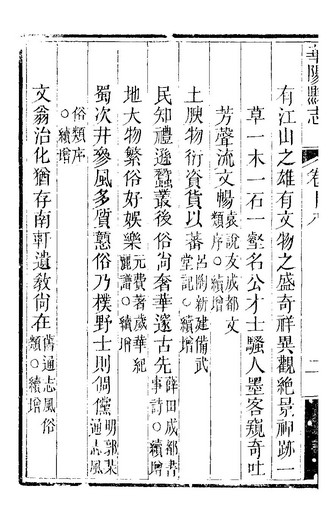 華陽縣志 卷目八 二
有江山之雄有文物之盛奇祥異觀絶景神跡一
草一木一石一壑名公才士騷人墨客窺奇吐
芳聲流文暢袁說友成都文類序○續增
土腴物衍資貨以蕃呂陶新建備武堂記○續增
民知禮遜蠶叢後俗尚奢華邃古先薛田成都書事詩○續增
地大物繁俗好娛樂元費著歲華紀麗譜○續增
蜀次井參風多質慤俗乃樸野士則倜儻明郭棐通志風
俗類序○續增
文翁治化猶存南軒遺敎尚在舊通志風俗類○續增